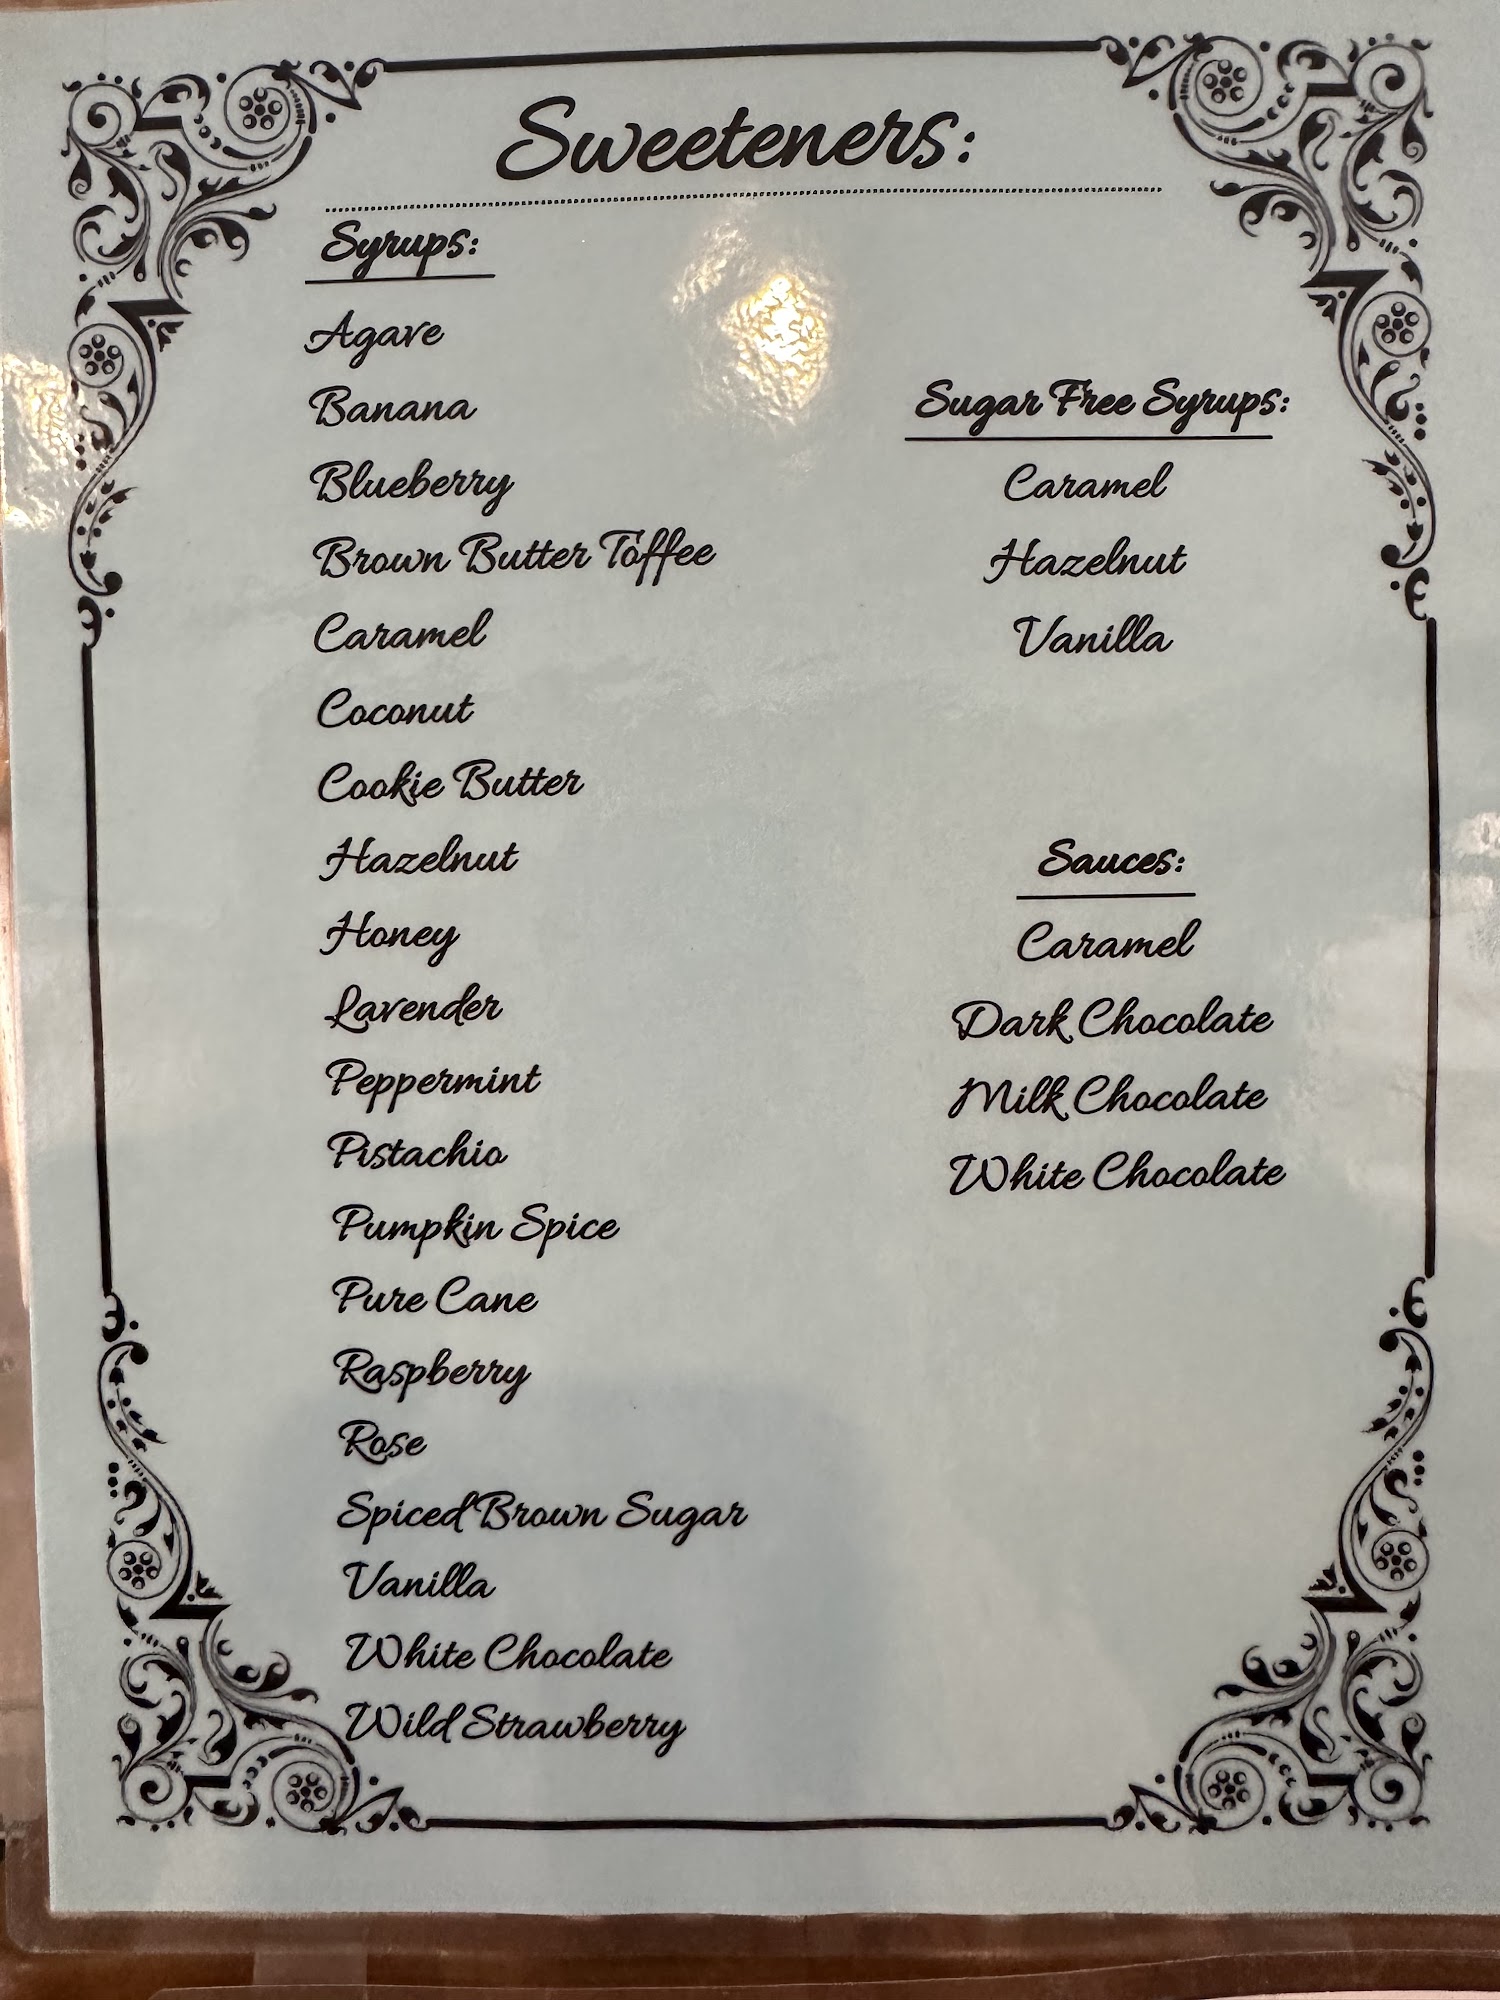 Sweeteners:
Syrups:
Agave
Banana
Blueberry
Brown Butter Toffee
Caramel
Coconut
Cookie Butter
Hazelnut
Honey
Lavender
Peppermint
Pistachio
Pumpkin Spice
Pure Cane
Raspberry
Rose
Spiced Brown Sugar
Vanilla
White Chocolate
Wild Strawberry
Sugar Free Syrups:
Caramel
Hazelnut
Vanilla
Sauces:
Caramel
Dark Chocolate
Milk Chocolate
White Chocolate